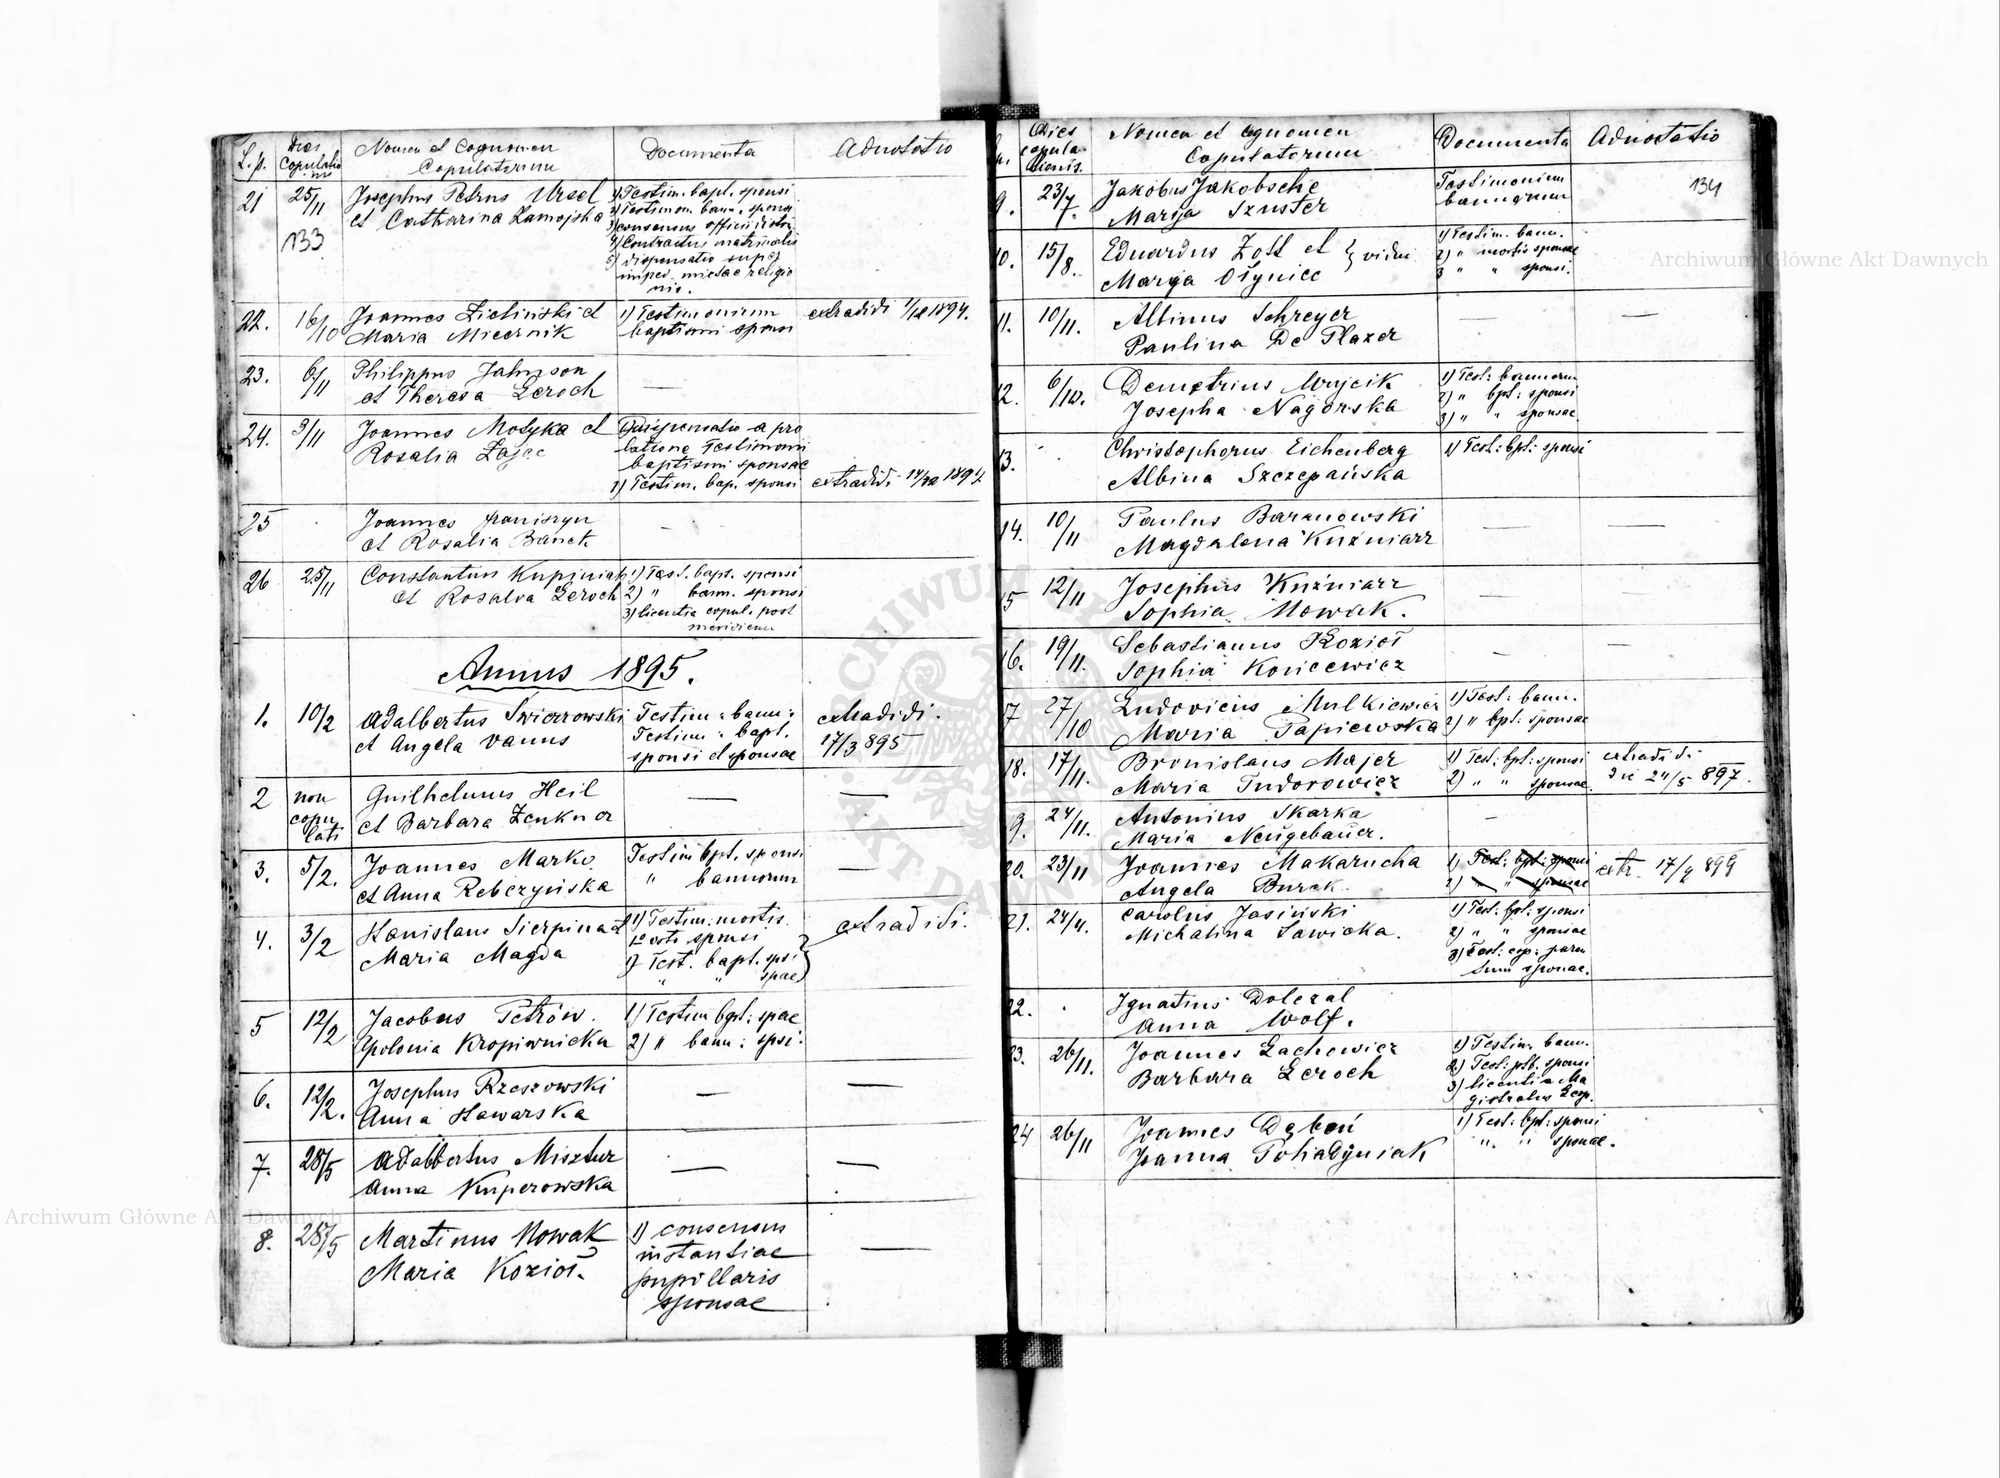 L. p.
Dies
Copulatio
nis
Nomen et Cognomen
Copulatorum
Documenta
Adnotatio
21
25/11
133
Josephus Petrus Ursel
et Catharina Zamojska
1) Testim. bapt. sponsi
2) Testimon. bann. sponsi
3) consensus officii
4) Contractus matrimonii
5) dispensatio super
imped. mixtae religio
nis.
22.
16/10
Joannes Zieliński et
Maria Miernik
1) Testimonium
baptismi sponsi
extradidi 1/12 1894.
23.
6/11
Philippus Jahnson
et Theresa Leroch
—
24.
9/11
Joannes Motyka et
Rosalia Zając
Dispensatio a pro
latione Testimonii
baptismi sponsae
1) Testim. bap. sponsi
extradidi 14/12 1894
25
Joannes
et Rosalia Banek
—
26
25/11
Constantius Kupiniak
et Rosalia Leroch
1) Test. bapt. sponsi
2) " bann. sponsi
3) licentia copul. post
meridiem
Annus 1895.
1.
10/2
Adalbertus Świerzowski
et Angela Vanus
Testim: bann:
Testim: bapt.
sponsi et sponsae
extradidi.
17/3 895
2
non
copu
lati
Guilhelmus Heil
et Barbara Zenkner
—
—
3.
5/2.
Joannes Marko
et Anna Rebczyńska
Testim bpt. sponsi
" bannorum
—
4.
3/2
Stanislaus Sierpina et
Maria Magda
1) Testim. mortis
sponsi
1) Test. bapt. spsi
" " spae
extradidi.
5
12/2
Jacobus Petrów.
Apolonia Kropiwnicka
1) Testim bpt: spae
2) " bann: spsi:
6.
12/2.
Josephus Rzeszowski
Anna Hawarska
—
—
7.
28/5
Adalbertus Misztur
Anna Kuperowska
—
—
8.
28/5
Martinus Nowak
Maria Kozioł.
1) consensus
instantiae
pupillaris
sponsae
—
Dies
copula
tionis.
Nomen et Cognomen
Copulatorum
Documenta
Adnotatio
134
9.
23/7.
Jakobus Jakobsche
Marya Szuster
Testimonium
bannorum
10.
15/8.
Eduardus Zoll et } vidui
Marya Ołyniec
1) Testim. bann.
2) " mortis sponsae
3 " " sponsi.
11.
10/11.
Albinus Schreyer
Paulina De Plazer
—
—
12.
6/10.
Demetrius Wujcik
Josepha Nagórska
1) Test: bannorum
2) " bpt: sponsi
3) " " sponsae
13.
Christophorus Eichenberg
Albina Szczepańska
1) Test: bpt: sponsi
14.
10/11
Paulus Baranowski
Magdalena Kuźniarz
—
—
15
12/11
Josephus Kuźniarz
Sophia Nowak.
—
—
16.
19/11.
Sebastianus Kozioł
Sophia Koncewicz
—
—
17
27/10
Ludovicus Mulkiewicz
Maria Papiewska
1) Test: bann.
2) " bpt: sponsae
18.
17/11.
Bronislaus Majer
Maria Tudorowicz
1) Test: bpt: sponsi
2) " " sponsae
extradidi
die 24/5 897.
19.
24/11.
Antonius Skarka
Maria Neugebauer.
—
20.
23/11
Joannes Makarucha
Angela Burek.
1) Test: bpt: sponsi
2) " " sponsae
extr. 17/9 899
21.
24/11.
Carolus Jasiński
Michalina Sawicka.
1) Test: bpt: sponsi
2) " " sponsae
3) Test: cop: paren
tum sponsae.
22.
Ignatius Dolezal
Anna Wolf.
23.
26/11.
Joannes Lachowicz
Barbara Leroch
1) Testim. bann.
2) Test: ptb. sponsi
3) licentia Ma
gistratus Leop.
24
26/11
Joannes Dęboń
Joanna Pohadyniak
1) Test: bpt: sponsi
" " sponsae.
Archiwum Główne Akt Dawnych
Archiwum Główne Akt Dawnych
ARCHIWUM
AKT DAWNYCH